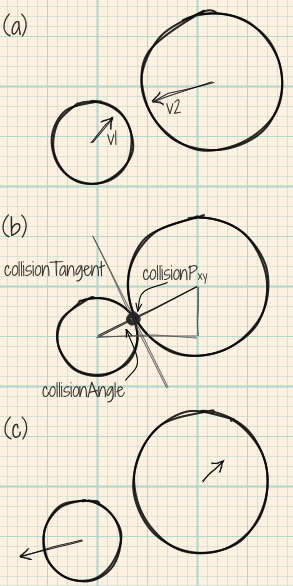 (a)
v1
v2
(b)
collisionTangent
collisionPxy
collisionAngle
(c)